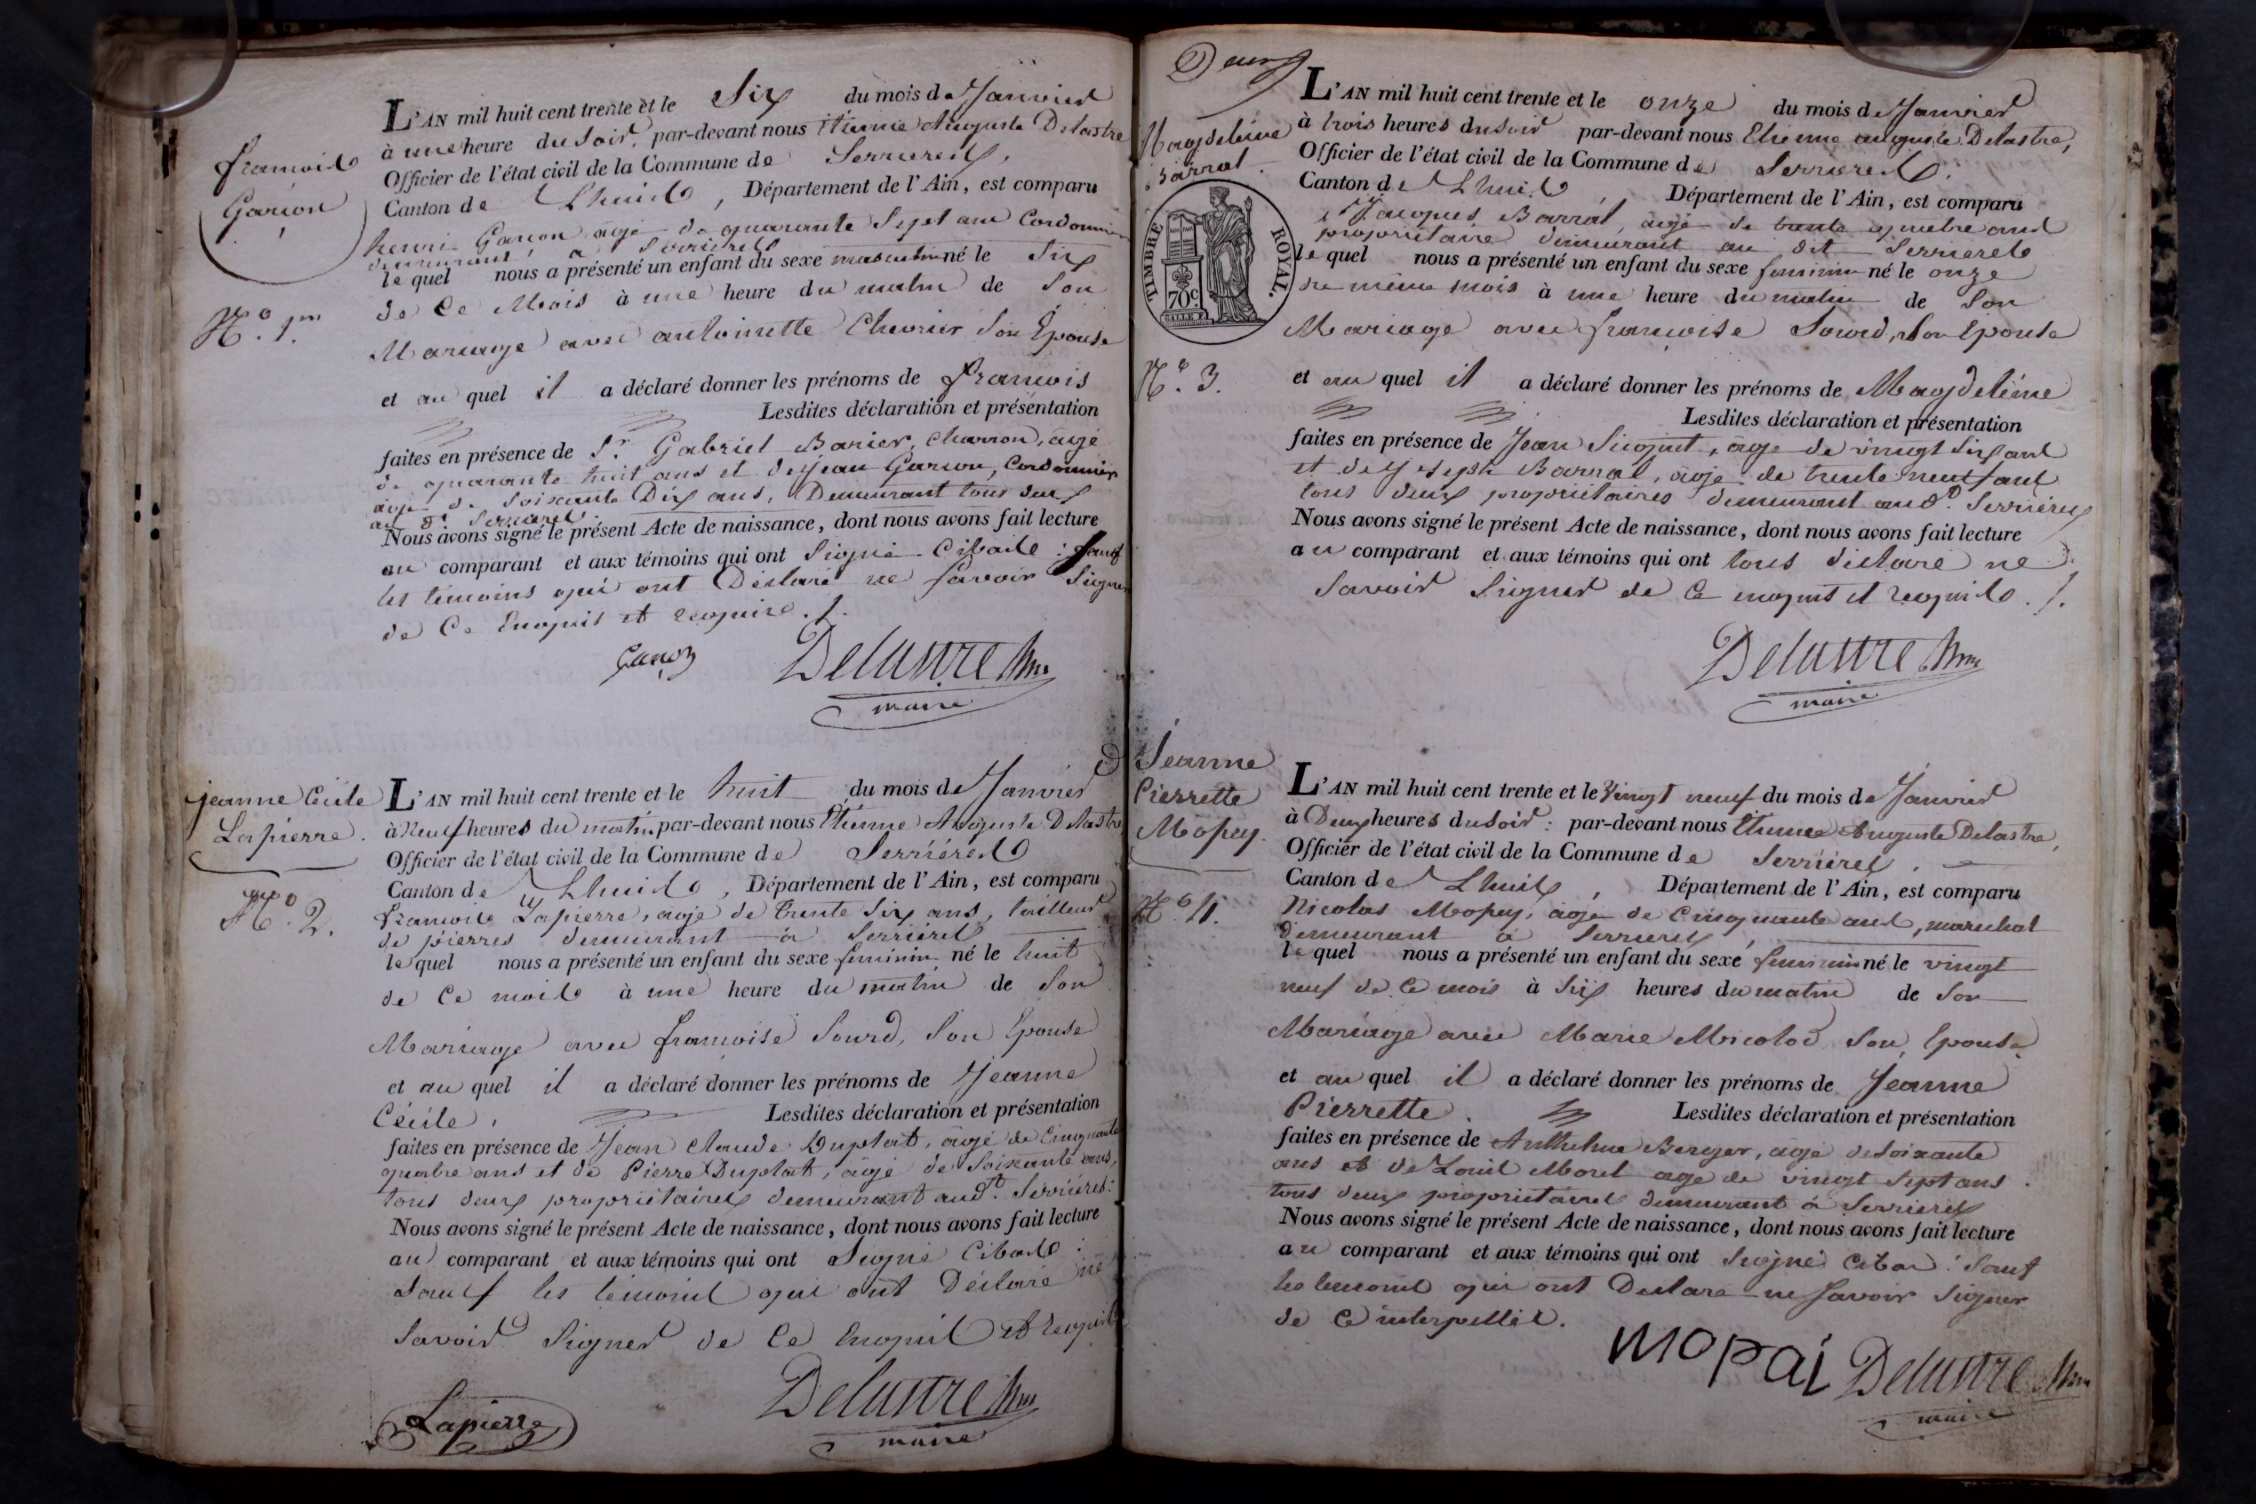 françois
Garçon
N.o 1.er
L'AN mil huit cent trente et le Six du mois de Janvier
à une heure du Soir, par-devant nous Etienne Auguste Delastre
Officier de l'état civil de la Commune de Serrieres,
Canton de Lhuis, Département de l'Ain, est comparu
henri Garçon agé de quarante Sept ans Cordonnier
demeurant à Serrieres
le quel nous a présenté un enfant du sexe masculin né le Six
de Ce Mois à une heure du matin de Son
Mariage avec antoinette Chevrier Son Épouse
et au quel il a déclaré donner les prénoms de françois
Lesdites déclaration et présentation
faites en présence de Sr. Gabriel Barier, charron, agé
de quarante huit ans et de Jean Garçon, Cordonnier
agé de Soixante Dix ans, Demeurant tous deux
au dt. Serrieres.
Nous avons signé le présent Acte de naissance, dont nous avons fait lecture
au comparant et aux témoins qui ont Signé : Sauf
les témoins qui ont Déclaré ne Savoir Signer
de Ce Enquis et requis.
Garçon
Delastre
maire
jeanne Cécile
Lapierre.
N.o 2.
L'AN mil huit cent trente et le huit du mois de Janvier
à Neuf heures du matin par-devant nous Etienne Auguste Delastre
Officier de l'état civil de la Commune de Serrieres
Canton de Lhuis, Département de l'Ain, est comparu
françois Lapierre, agé de trente Six ans, tailleur
de pierres demeurant à Serrieres
le quel nous a présenté un enfant du sexe feminin né le huit
de Ce mois à une heure du matin de Son
Mariage avec françoise Sourd, Son Epouse
et au quel il a déclaré donner les prénoms de Jeanne
Cécile, Lesdites déclaration et présentation
faites en présence de Jean claude Duplat, agé de Cinquante
quatre ans et de Pierre Duplat, agé de Soixante ans,
tous deux propriétaires demeurant aud.t Serrieres:
Nous avons signé le présent Acte de naissance, dont nous avons fait lecture
au comparant et aux témoins qui ont Signé :
Sauf les témoins qui ont Déclaré ne
Savoir Signer de Ce Enquis et requis
Lapierre
Delastre
maire
Deux
Magdeleine
Barral.
TIMBRE ROYAL.
70c.
N.o 3.
L'AN mil huit cent trente et le onze du mois de Janvier
à trois heures du soir par-devant nous Etienne auguste Delastre,
Officier de l'état civil de la Commune de Serrieres.
Canton de Lhuis Département de l'Ain, est comparu
Jacques Barral, agé de trente quatre ans
propriétaire demeurant au dit Serrieres
le quel nous a présenté un enfant du sexe feminin né le onze
du même mois à une heure du matin de Son
Mariage avec françoise Sourd, Son Epouse
et au quel il a déclaré donner les prénoms de Magdeleine
Lesdites déclaration et présentation
faites en présence de Jean Sicquet, agé de vingt Six ans
et de Joseph Barral, agé de trente neuf ans
tous deux propriétaires demeurant aud. Serrieres
Nous avons signé le présent Acte de naissance, dont nous avons fait lecture
au comparant et aux témoins qui ont tous déclaré ne
Savoir Signer de Ce enquis et requis.
Delastre
maire
Jeanne
Pierrette
Mopey.
N.o 4.
L'AN mil huit cent trente et le Vingt neuf du mois de Janvier
à Deux heures du soir: par-devant nous Etienne Auguste Delastre,
Officier de l'état civil de la Commune de Serrieres,
Canton de Lhuis, Département de l'Ain, est comparu
Nicolas Mopey, agé de Cinquante ans, marechal
demeurant à Serrieres,
le quel nous a présenté un enfant du sexe feminin né le vingt
neuf de Ce mois à Six heures du matin de Son
Mariage avec Marie Micolod Son Epouse
et au quel il a déclaré donner les prénoms de Jeanne
Pierrette. Lesdites déclaration et présentation
faites en présence de Anthelme Berger, agé de soixante
ans et de Louis Morel agé de vingt Sept ans
tous deux propriétaires demeurant à Serrieres
Nous avons signé le présent Acte de naissance, dont nous avons fait lecture
au comparant et aux témoins qui ont Signé : Sauf
les temoins qui ont Declaré ne Savoir Signer
de Ce interpellés.
Mopai
Delastre
maire